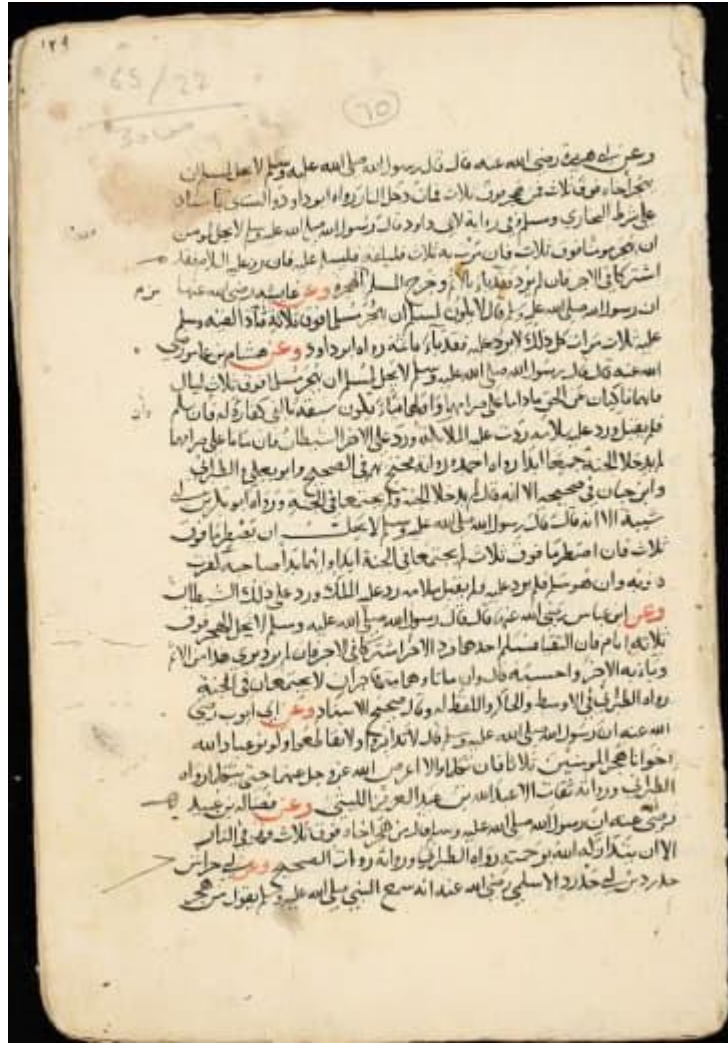 ١٢٩
65/22
٦٥
وعن أبي هريرة رضى الله عنه قال قال رسول الله صلى الله عليه وسلم لا يحل لمسلم ان
يهجر أخاه فوق ثلاث فمن هجر فوق ثلاث فمات دخل النار رواه ابو داود والنسائى باسناد
على شرط البخارى ومسلم وفى رواية لابى داود قال رسول الله صلى الله عليه وسلم لا يحل لمومن
ان يهجر مومنا فوق ثلاث فان مرت به ثلاث فليلقه فليسلم عليه فان رد عليه السلام فقد
اشتركا فى الاجر فان لم يرد فقد باء بالاثم وخرج المسلم من الهجرة وعن عايشه رضى الله عنها
ان رسول الله صلى الله عليه وسلم قال لا يكون لمسلم ان يهجر مسلما فوق ثلاثة فاذا لقيه سلم
عليه ثلاث مرات كل ذلك لا يرد عليه فقد باء باثمه رواه ابو داود وعن هشام بن عامر رضى
الله عنه قال قال رسول الله صلى الله عليه وسلم لا يحل لمسلم ان يهجر مسلما فوق ثلاث ليال
فانهما ناكبان عن الحق ماداما على صرامهما واولهما فيا يكون سبقه بالفى كفارة له فان سلم
فلم يقبل ورد عليه سلامه ردت عليه الملايكة ورد على الاخر الشيطان فان ماتا على صرامهما
لم يدخلا الجنة جميعا ابدا رواه احمد ورواته محتج بهم فى الصحيح وابو يعلى والطبرانى
وابن حبان فى صحيحه الا انه قال لم يدخلا الجنة ولم يجتمعا فى الجنة ورواه ابو بكر بن أبى
شيبة الا انه قال قال رسول الله صلى الله عليه وسلم لا يحل ان تصطرما فوق
ثلاث فان اصطرما فوق ثلاث لم يجتمعا فى الجنة ابدا وايهما بدا صاحبه كفرت
ذنوبه وان هو سلم فلم يرد عليه ولم يقبل سلامه رد عليه الملك ورد على ذلك الشيطان
وعن ابن عباس رضى الله عنهما قال قال رسول الله صلى الله عليه وسلم لا يحل الهجر فوق
ثلاثة ايام فان التقيا فسلم احدهما فرد الاخر اشتركا فى الاجر فان لم يرد برى هذا من الاثم
وباء به الاخر واحسبه قال وان ماتا وهما متهاجران لا يجتمعان فى الجنة
رواه الطبرانى فى الاوسط والحاكم واللفظ له وقال صحيح الاسناد وعن ابى ايوب رضى
الله عنه ان رسول الله صلى الله عليه وسلم قال لا تدابروا ولا تقاطعوا وكونوا عباد الله
اخوانا هجر المومنين ثلاثا فان تكلما والا اعرض الله عز وجل عنهما حتى يتكلما رواه
الطبرانى ورواته ثقات الا عبد الله بن عبد العزيز الليثى وعن فضاله بن عبيد
رضى الله عنه ان رسول الله صلى الله عليه وسلم قال من هجر اخاه فوق ثلاث فهو فى النار
الا ان يتداركه الله برحمته رواه الطبرانى ورواته رواة الصحيح وعن أبى حراش
حدرد بن أبى حدرد الاسلمى رضى الله عنه انه سمع النبى صلى الله عليه وسلم يقول من هجر